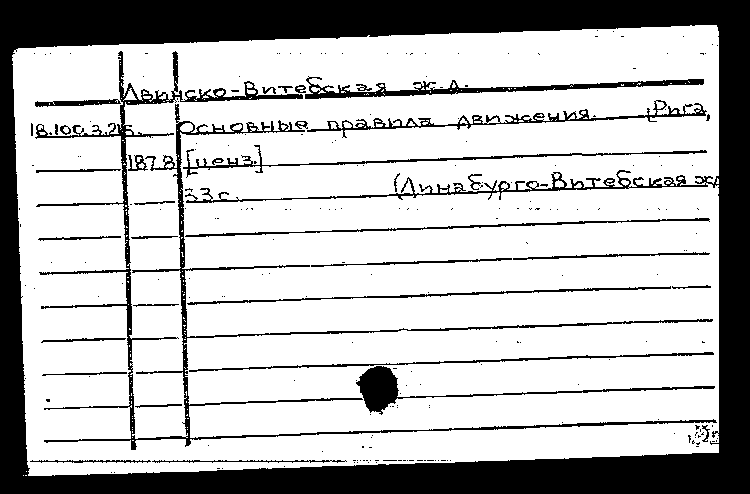 Двинско-Витебская ж.д.
18.100.3.215. Основные правила движения. [Рига,
1878] [ценз]
33 с. (Динабурго-Витебская ж